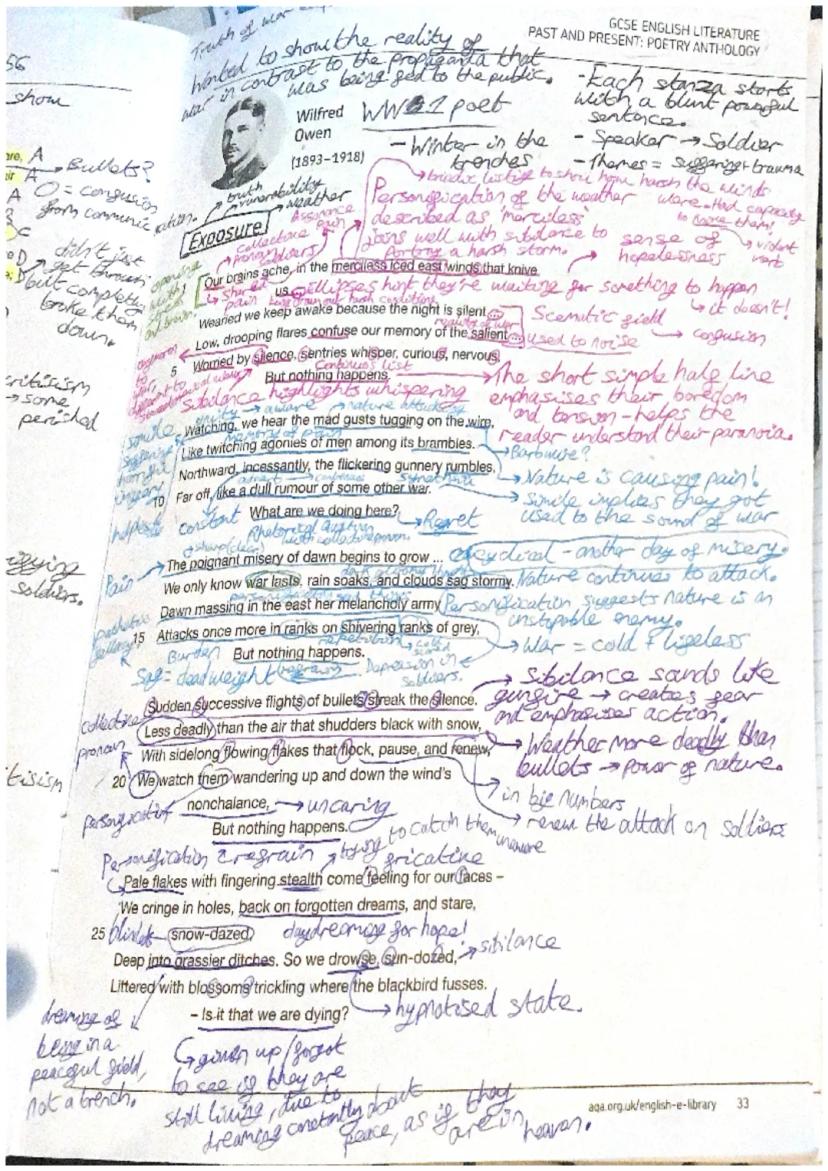 GCSE ENGLISH LITERATURE
PAST AND PRESENT: POETRY ANTHOLOGY
Truth of war
Wanted to show the reality of
war in contrast to the propaganda that
was being fed to the public.
56
show
Wilfred
Owen
(1893–1918)
WW1 poet
- Winter in the
trenches
- Each stanza starts
with a blunt powerful
sentence.
- Speaker → Soldier
- Themes = suffering + trauma
A → Bullets?
A
A O = confusion
from communication.
C
didn't just
get through
but completely
broke them
down.
criticism
→ some
perished
soldiers.
truth
vulnerability
weather
Exposure
Assonance
Collective
pronoun
soldiers
pain
triadic listing to show how harsh the winds
were.
Personification of the weather
described as 'merciless'
joins well with sibilance to
portray a harsh storm.
Had capacity
to them!
violent
sense of
hopelessness
Our brains ache, in the merciless iced east winds that knive
us ...
ellipses hint they're waiting for something to happen
↳ it doesn't!
Wearied we keep awake because the night is silent ...
Semantic field
→ confusion
Low, drooping flares confuse our memory of the salient ...
used to noise
5 Worried by silence, sentries whisper, curious, nervous,
Continuous list
But nothing happens.
Sibilance highlights whispering
The short simple half line
emphasises their boredom
and tension - helps the
reader understand their paranoia.
aware
nature attacks
Watching, we hear the mad gusts tugging on the wire,
simile
Like twitching agonies of men among its brambles.
→ Barbwire?
Northward, incessantly, the flickering gunnery rumbles,
→ Nature is causing pain!
10 Far off, like a dull rumour of some other war.
→ simile implies they got
used to the sound of war
constant
What are we doing here?
→ Regret
Rhetorical question
with collective pronoun.
The poignant misery of dawn begins to grow ...
cyclical - another day of misery.
Pain
We only know war lasts, rain soaks, and clouds sag stormy.
Nature continues to attack.
Dawn massing in the east her melancholy army
Personification suggests nature is an
unstoppable enemy.
pathetic
fallacy
15 Attacks once more in ranks on shivering ranks of grey,
→ War = cold + lifeless
Burden
repetition
But nothing happens.
Sag = dead weight
Depression in
soldiers.
Sudden successive flights of bullets streak the silence.
→ Sibilance sounds like
gunfire → creates fear
and emphasises action.
Less deadly than the air that shudders black with snow,
→ Weather more deadly than
bullets → power of nature.
collective
pronoun
With sidelong flowing flakes that flock, pause, and renew,
→ in big numbers
→ renew the attack on soldiers
20 We watch them wandering up and down the wind's
nonchalance,
→ uncaring
personification
But nothing happens.
trying to catch them unaware
Personification
fricative
Pale flakes with fingering stealth come feeling for our faces –
We cringe in holes, back on forgotten dreams, and stare,
25 snow-dazed,
daydreaming for hope!
Deep into grassier ditches. So we drowse, sun-dozed,
→ sibilance
Littered with blossoms trickling where the blackbird fusses.
→ hypnotised state.
– Is it that we are dying?
dreaming of
being in a
peaceful field,
not a trench.
↳ given up / forgot
to see if they are
still living, due to
dreaming constantly about
peace, as if they
are in
heaven.
aqa.org.uk/english-e-library 33